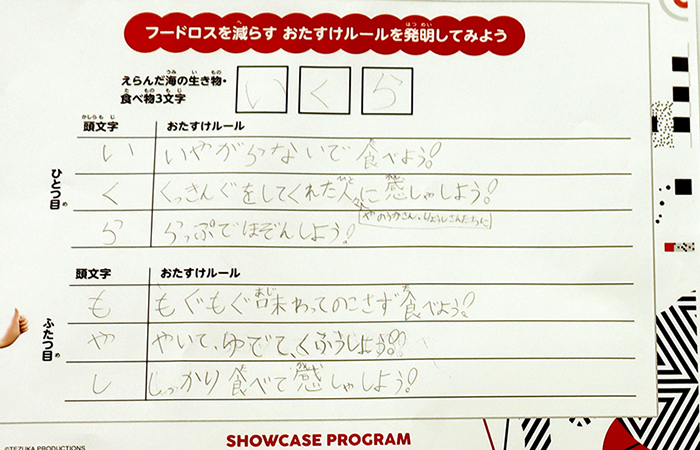 フードロスを減らす おたすけルールを発明してみよう
えらんだ海の生き物・
食べ物3文字
い く ら
頭文字 おたすけルール
ひとつ目
い いやがらないで食べよう!
く くっきんぐをしてくれた人に感しゃしよう!
やのうかさん、りょうしさんたちに
ら らっぷでほぞんしよう!
頭文字 おたすけルール
ふたつ目
も もぐもぐ味わってのこさず食べよう!
や やいて、ゆでて、くふうしよう!
し しっかり食べて感しゃしよう!
©TEZUKA PRODUCTIONS
SHOWCASE PROGRAM